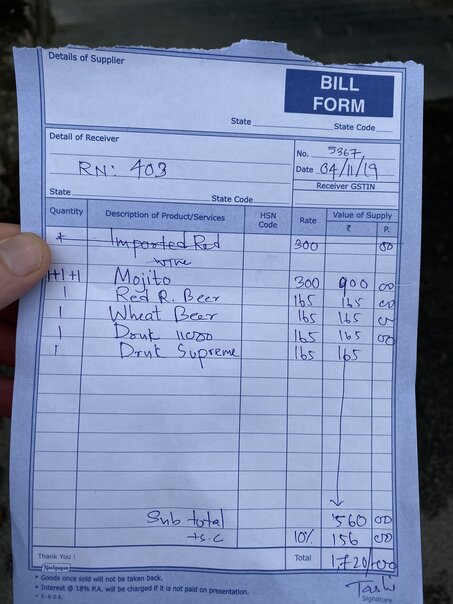 Details of Supplier
BILL
FORM
State
State Code
Detail of Receiver
No. 5367
RN: 403
Date 04/11/19
Receiver GSTIN
State
State Code
Quantity Description of Product/Services HSN Code Rate Value of Supply
₹ P.
Imported Red 300 00
wine
1+1+1 Mojito 300 900 00
1 Red R. Beer 165 165 00
1 Wheat Beer 165 165 00
1 Druk 11000 165 165 00
1 Druk Supreme 165 165
Sub total 1560 00
+s.c 10% 156 00
Thank You !
Total 1,720 00
Navyugan
• Goods once sold will not be taken back.
• Interest @ 18% P.A. will be charged if it is not paid on presentation.
• E. & O.E.
Tashi
Signature